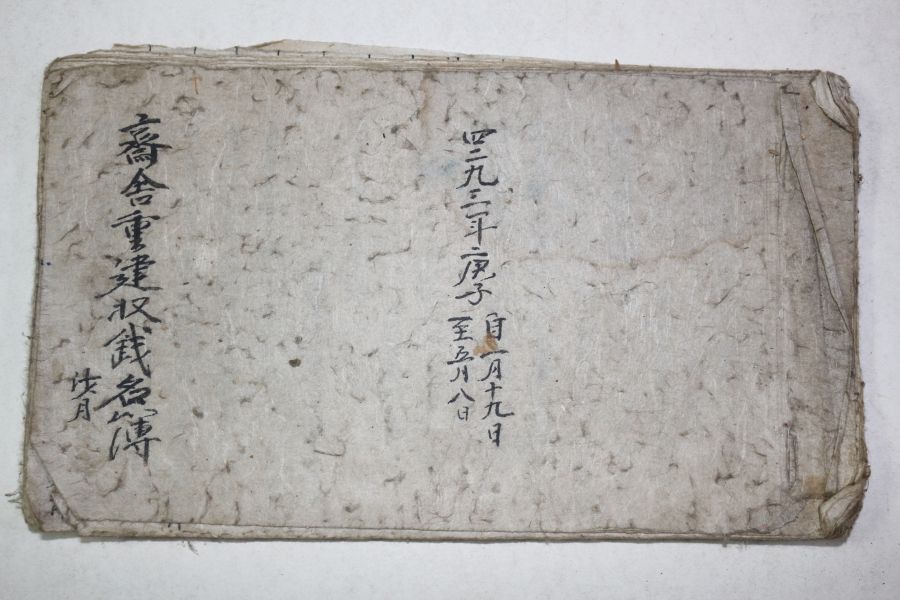 四二九三年庚子
自一月十九日
至五月八日
齋舍重建収銭名簿